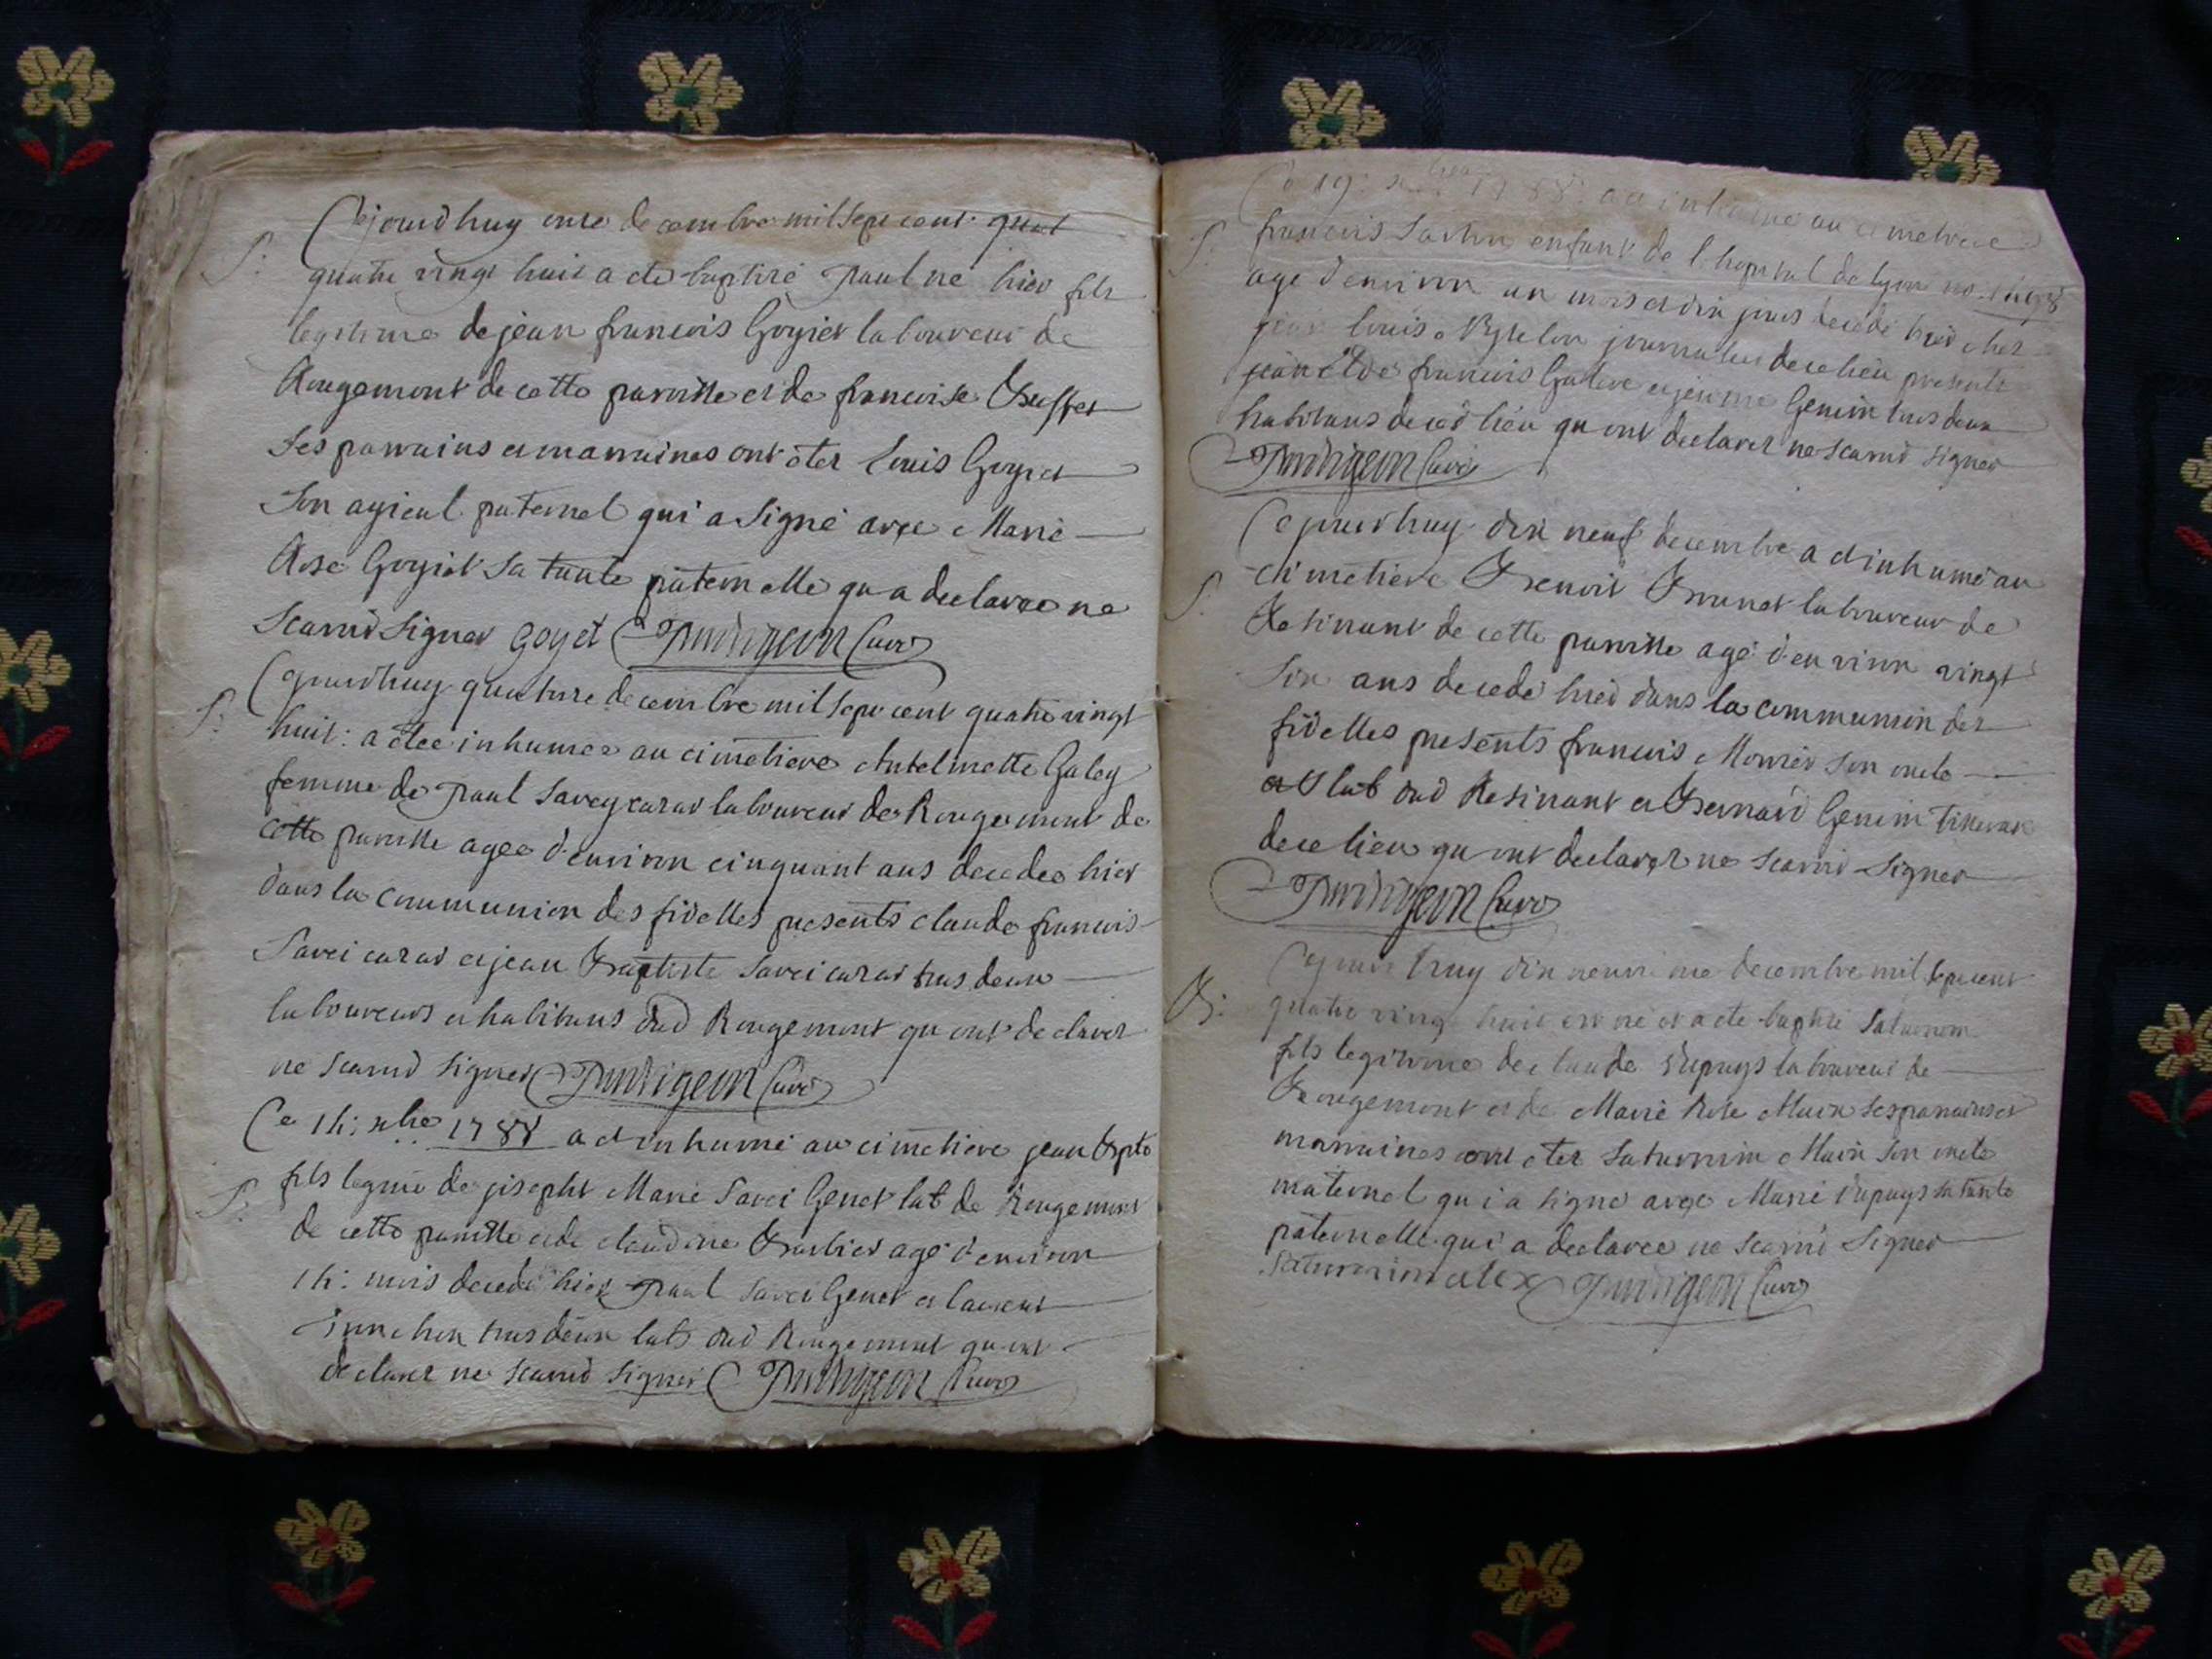 Cejourdhuy onze decembre mil sept cent quat
S:
quatre vingt huit a ete baptisé paul né hier fils
legitime de jean francois Goyiet laboureur de
Rougemont de cette paroisse et de francoise Buffet
ses parrains et marraines ont éter Louis Goyiet
son ayieul paternel qui a signé avec Marie
Rose Goyiet sa tante paternelle qu a declaree ne
scavoir signer goyet Prudigeon Curé
Cejourdhuy quatorze decembre mil sept cent quatre vingt
S:
huit: a étee inhumee au cimetiere Antelmette Galey
femme de paul Saveycaras laboureur de Rougemont de
cette paroisse agee d'environ cinquant ans decedee hier
dans la communion des fidelles presents claude francois
Savei caras et jean Baptiste Savei caras tous deux
laboureurs et habitans dud Rougemont qu ont declarer
ne scavoir signer Curé
Ce 14: xbre 1788 a et inhumé au cimetiere jean Bpte
S:
fils legme de joseph Marie Savei Genet lab de Rougemont
de cette paroisse et de claudine Barbier agé d'environ
14: mois decedé hier paul Savei Genet et laurent
tous deux labs dud Rougemont qu ont
declarer ne scavoir signer Curé
Ce 19: xbre 1788: a et inhumé au cimetiere
S:
francois enfant de l'hopital de lyon no
age d'environ un mois et dix jours decedé hier chez
louis journalier de ce lieu presents
francois et jerome Genin tous deux
habitans de ced lieu qu ont declarer ne scavoir signer
Curé
Cejourdhuy dix neuf decembre a et inhumé au
S:
cimetiere Benoit Brunet laboureur de
Resinant de cette paroisse agé d'environ vingt
six ans decedé hier dans la communion des
fidelles presents francois Monier son oncle
lab dud Resinant et Bernard Genin
de ce lieu qu ont declarer ne scavoir signer
Curé
Cejourdhuy dix neuvieme decembre mil sept cent
B:
quatre vingt huit est né et a ete baptisé Saturnin
fils legitime de claude dupuys laboureur de
Rougemont et de Marie Rose ses parrains et
marraines ont eter Saturnin son oncle
maternel qui a signé avec Marie dupuys sa tante
paternelle qui a declaree ne scavoir signer
Saturnin Curé